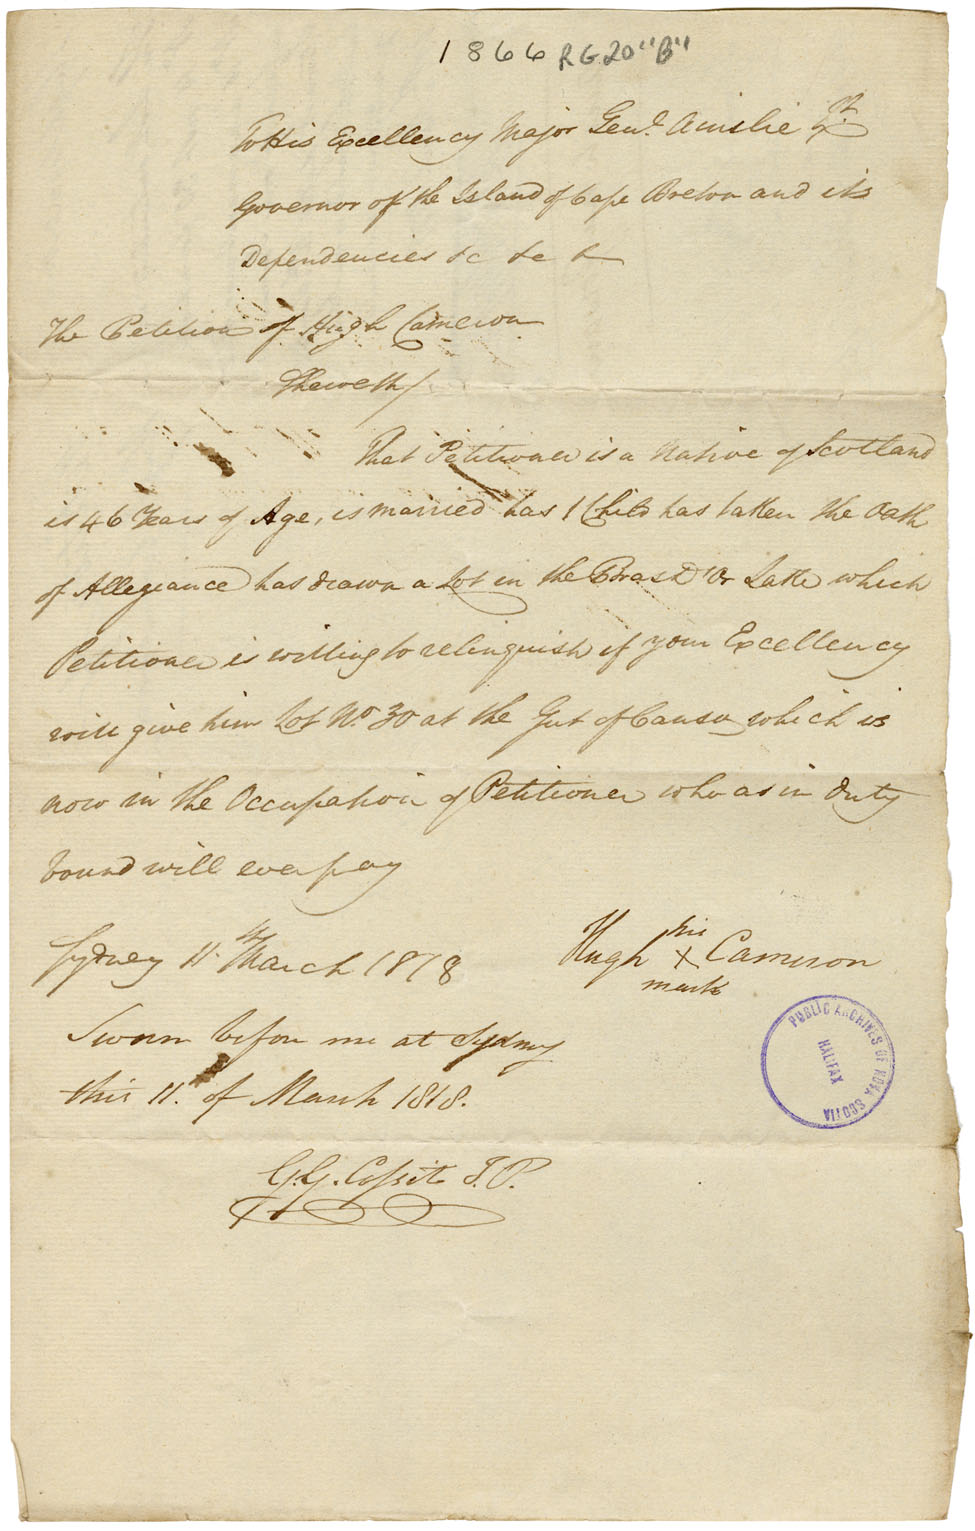 1866 RG.20 "B"
To His Excellency Major Genl. Ainslie Lt.
Governor of the Island of Cape Breton and its
Dependencies &c &c &
The Petition of Hugh Cameron
Sheweth/
That Petitioner is a Native of Scotland
is 46 Years of Age, is married has 1 Child has taken the Oath
of Allegiance has drawn a Lot in the Bras D'Or Lake which
Petitioner is willing to relinquish if your Excellency
will give him Lot No 30 at the Gut of Canso which is
now in the Occupation of Petitioner who as in duty
bound will ever pay
Sydney 11th March 1818
Hugh his X mark Cameron
Sworn before me at Sydney
this 11. of March 1818.
G.G. Cossit J.P.
PUBLIC ARCHIVES OF NOVA SCOTIA
HALIFAX